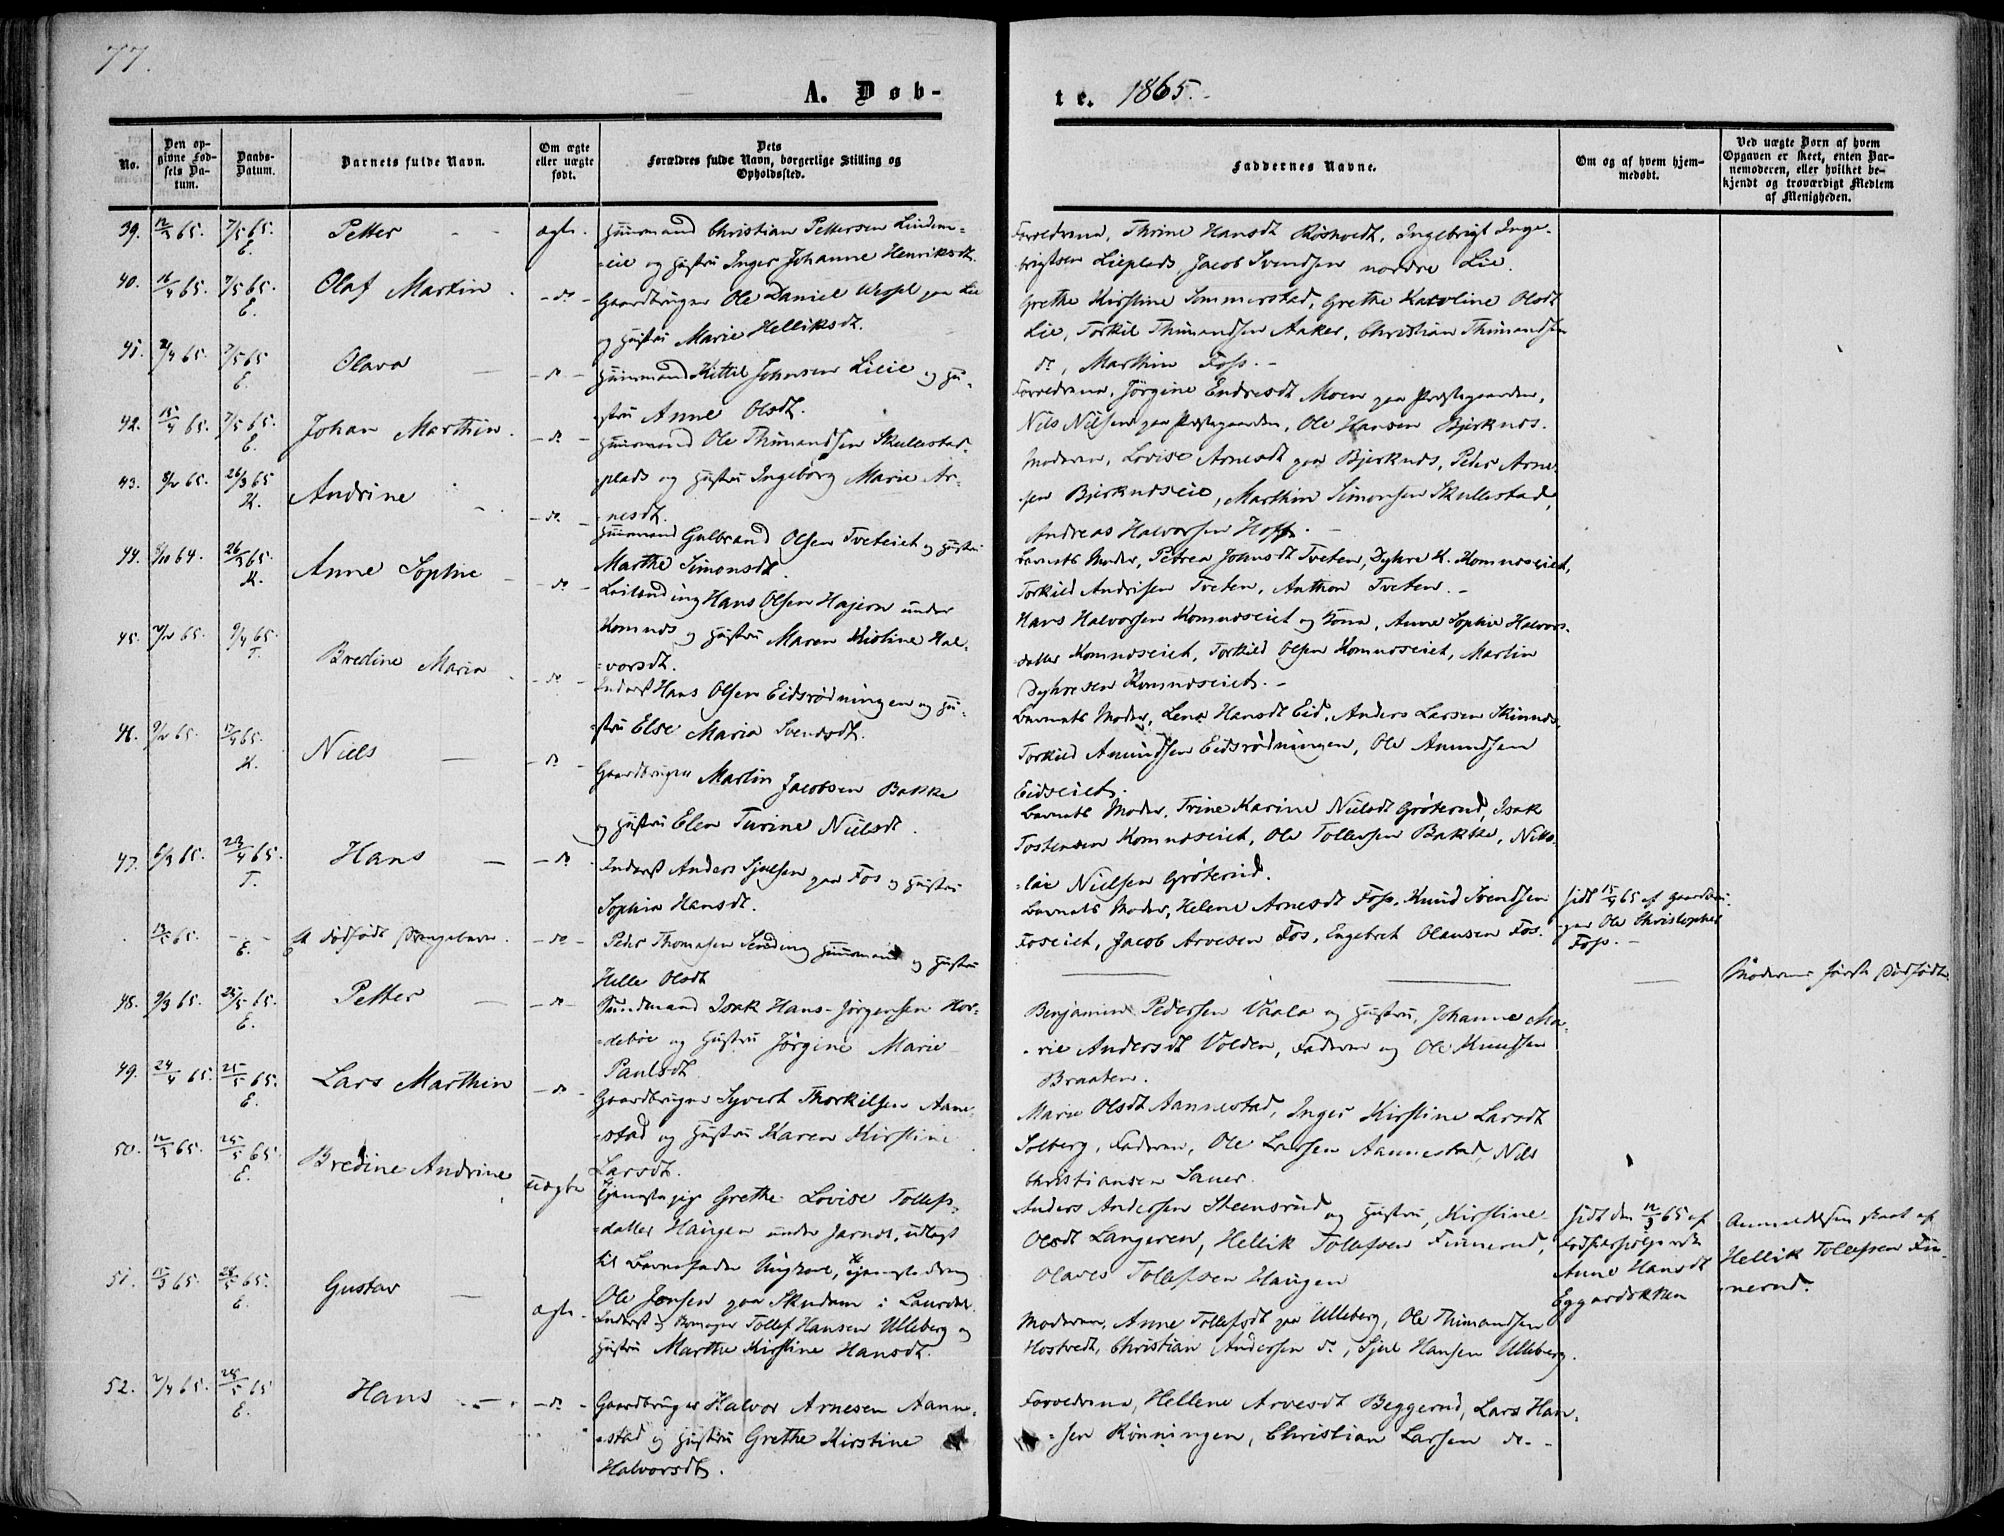 77.
A. Døb-
te. 1865.
No.
Den op-
givne Fød-
sels Da-
tum.
Daabs-
Datum.
Barnets fulde Navn.
Om ægte
eller uægte
født.
Dets
Forældres fulde Navn, borgerlige Stilling og
Opholdssted.
Faddernes Navne.
Om og af hvem hjem-
medøbt.
Ved uægte Børn af hvem
Opgaven er skeet, enten Bar-
nemoderen, eller hvilket be-
kjendt og troværdigt Medlem
af Menigheden.
39. 12/3 65. 7/5 65. E. Petter - - ægte. Huusmand Christian Pettersen Lindem=
=eie og Hustru Inger Johanne Henriksdt.
Forældrene, Thrine Hansdt Røskvedt, Ingebrigt Inge-
brigtsen Lieplads, Jacob Svendsen nordre Lie.
40. 16/4 65. 7/5 65. E. Olaf Martin. - do - Gaardbruger Ole Daniel Wessel paa Lie
og Hustru Marie Helliksdt.
Grethe Kirstine Sommerstad, Grethe Karoline Olsdt
Lie, Torkil Thimandsen Aaker, Christian Thimandsen
do, Marthin Foss. -
41. 2/4 65. 7/5 65 E. Olava - - do - Huusmand Kittil Johnsen Lieie og Hu-
=stru Anne Olsdt.
Forældrene, Jørgine Endresdt Moen paa Præstegaarden,
Nils Nilsen paa Præstegaarden, Ole Hansen Bjerknes.
42. 15/4 65. 7/5 65. E. Johan Marthin. - do - Huusmand Ole Thimandsen Skullestad-
plads og Hustru Ingeborg Marie Ar-
=nesdt.
Moderen, Lovise Arnesdt paa Bjerknes, Peder Arne-
sen Bjerkneseie, Marthin Simonsen Skullestad,
Andreas Halvorsen Hoff. -
43. 8/2 65. 26/3 65 K. Andrine - do - Huusmand Gulbrand Olsen Tveteiet og Hustru
Marthe Simonsdt.
Barnets Moder, Petrea Johnsdt Tveten, Dyhre K. Komnæseiet,
Torkild Andrisen Tveten, Anthon Tveten. -
44. 64. 26/3 65. K. Anne Sophie - - do - Leilænding Hans Olsen Hajern under
Komnæs og Hustru Maren Kistine Hal-
=vorsdt.
Hans Halvorsen Komnæseiet og Kone, Anne Sophie Halvors-
datter Komnæseiet, Torkild Olsen Komnæseiet, Martin
Dyhresen Komnæseiet. -
45. 2/2 65. 9/4 65. T. Bredine Maria - do - Inderst Hans Olsen Eidsrødningen og Hu-
=stru Else Maria Svendsdt.
Barnets Moder, Lena Hansdt Eid, Anders Larsen Skinnæs,
Torkild Amundsen Eidsrødningen, Ole Amundsen
Eidseiet.
46. 9/2 65. 17/4 65. K. Niels - - do - Gaardbruger Martin Jacobsen Bakke
og Hustru Elen Turine Nielsdt.
Barnets Moder, Trine Karine Nielsdt Grøterud, Isak
Tostensen Komnæseiet, Ole Tollefsen Bakke, Niko-
=lai Nielsen Grøterud.
47. 6/3 65. 23/4 65. T. Hans - - do Inderst Anders Sjulsen paa Fos og Hustru
Sophia Hansdt.
Barnets Moder, Helene Arnesdt Foss, Knud Svendsen
Foseiet, Jacob Arvesen Fos, Engebret Olausen Fos.
hjdt 15/4 65 af Gaardbru-
ger Ole Christopher
Foss. -
13/5 65. - - E. Et dødfødt Drengebarn. - do - Peder Thomasen Sending Huusmand og Hustru
Helle Olsdt
Moderens første Dødfødte
48. 9/3 65. 25/5 65. E. Petter - - do - Sundmand Isak Hans-Jørgensen Hor-
=deböe og Hustru Jørgine Marie
Paulsdt
Benjamin Pedersen Vaala og Hustru, Johanne Ma-
-rie Andersdt Volden, Faderen og Ole Knudsen
Braaten.
49. 24/4 65. 25/5 65. E. Lars Marthin - do - Gaardbruger Syvert Thorkilsen Aane-
=stad og Hustru Karen Kirstine
Larsdt.
Marie Olsdt Aannestad, Inger Kirstine Larsdt
Solberg, Faderen, Ole Larsen Aannestad, Nils
Christiansen Sauer.
50. 12/3 65. 25/5 65. E. Bredine Andrine uægte Tjenestepige Grethe Lovise Tollefs-
=datter Haugen under Jarndt, udlagt
til Barnefader Ungkarl, Tjenestedreng
Ole Jensen paa Skudem i Laurdal.
Anders Andersen Steensrud og Hustru, Kirstine
Olsdt Langeren, Hellik Tollefsen Finnerud,
Olaves Tollefsen Haugen
hjdt den 12/3 65 af
Anne Hansdt
Eggerdokken
Anmeldelsen skeet af
Hellik Tollefsen Fin-
=nerud.
51. 15/3 65. 28/5 65. E. Gustav - ægte. Inderst og Tollef Hansen Ulleberg og
Hustru Marthe Kirstine Hansdt.
Moderen, Anne Tollefsdt paa Ulleberg, Ole Thimandsen
Hostvedt, Christian Andersen do, Sjul Hansen Ulleberg.
52. 2/4 65. 28/5 65 E. Hans - - do - Gaardbruger Halvor Arnesen Aanne-
=stad og Hustru Grethe Kirstine
Halvorsdt.
Forældrene, Hellene Arvesdt Beggerud, Lars Han-
=sen Rönningen, Christian Larsen do. -